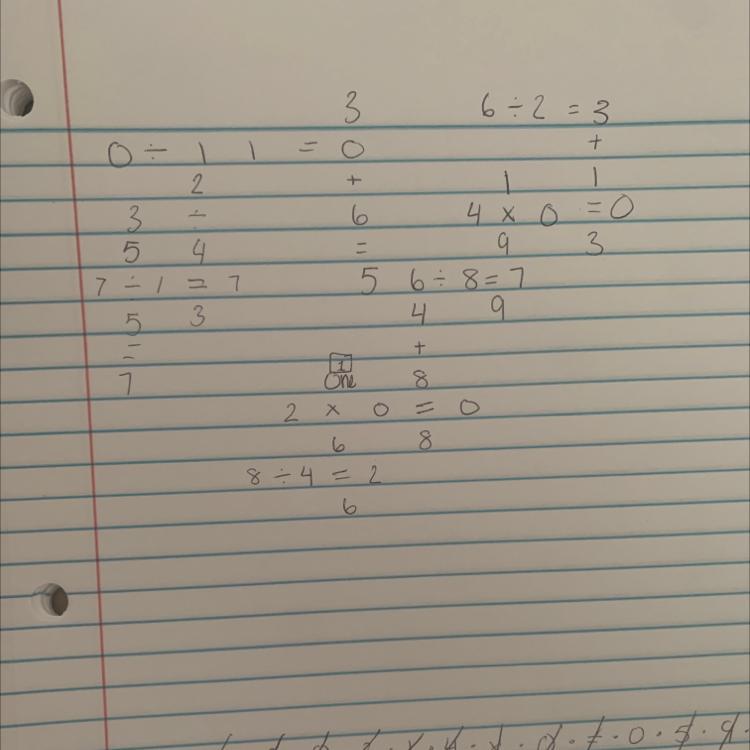 3 6 ÷ 2 = 3
0 ÷ 1 1 = 0 +
2 + 1 1
3 ÷ 6 4 x 0 = 0
5 4 = 9 3
7 ÷ 1 = 7 5 6 ÷ 8 = 7
5 3 4 9
= +
1
7 One 8
2 x 0 = 0
6 8
8 ÷ 4 = 2
6